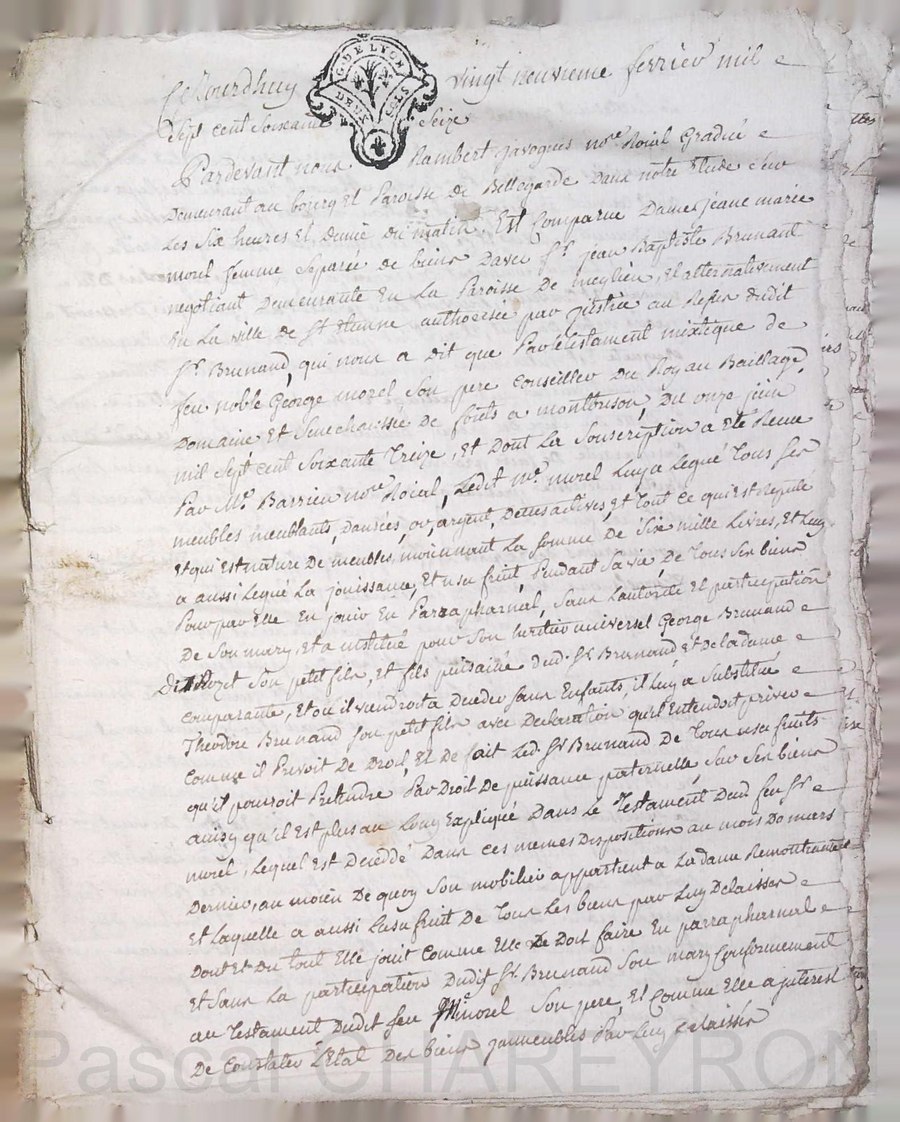 Ce Jourdhuy vingt neuvieme ferrier mil
G. DE LYON
DEUX SOLS
Sept cent Soixante Seize
Pardevant nous Rambert javogues nore Roial Gradué
Demeurant au bourg et Paroisse de Bellegarde Dans notre Etude Sur
Les Six heures et Demie du matin, Est Comparue Dame jeane marie
morel femme Separée de biens Davec Sr. jean Baptiste Brunant
negotiant Demeurante En La Paroisse de meylieu, et alternativement
En La ville de St. Etienne authorisée par justice au Refus dudit
Sr. Brunand, qui nous a dit que Par le testament mixtique de
feu noble George morel Son pere Conseiller Du Roy au Baillage,
Domaine Et Senechaussée De forets a montbrison, Du onze juin
mil Sept cent Soixante Treize, Et Dont La Souscription a Eté Reçue
Par Me. Barrieu nore Roial, Ledit Mr. morel Luy a Legué Tous Ses
meubles meublants, Danrées, or, argent, Dettes actives, et Tout ce qui Est Reputé
Et qui Est nature De meubles, moiennant La Somme de Six mille Livres, Et Luy
a aussi Legué La jouissance, Et usufruit Pendant Sa vie, De Tous Ses biens
Pour par Elle En jouir En Parrapharnal, Sans L'autorité Et participation
De Son mary, Et a institué pour Son heritier universel George Brunand
Durozet Son petit fils, et fils puisainé dud. Sr. Brunand et De la dame
Comparante, Et ou il viendroit a Deceder Sans Enfants, il Luy a Substitué
Theodore Brunand Son petit fils avec Declaration qu'il Entendoit priver
Comme il Privoit De Droit, Et De fait Led. Sr. Brunand De Tous usufruits
qu'il pourroit Pretendre Par Droit De puissance paternelle Sur Ses biens
ainsy qu'il Est plus au Long Expliqué Dans Le Testament Dud feu Sr.
morel, Lequel Est Decedé Dans Ces memes Dispositions au mois De mars
Dernier, au moien De quoy Son mobilier appartient a La dame Remontrante
Et Laquelle a aussi L'usufruit De Tous Les biens par Luy Delaisses
Dont et Du Tout Elle jouit Comme Elle Le Doit faire En parrapharnal
Et Sans La participation Dudit Sr. Brunand Son mary Conformement
au Testament Dudit feu Mr. morel Son pere, Et Comme Elle a interest
De Constater L'Etat Des biens jmmeubles Par Luy Delaisses
Pascal CHAREYRON